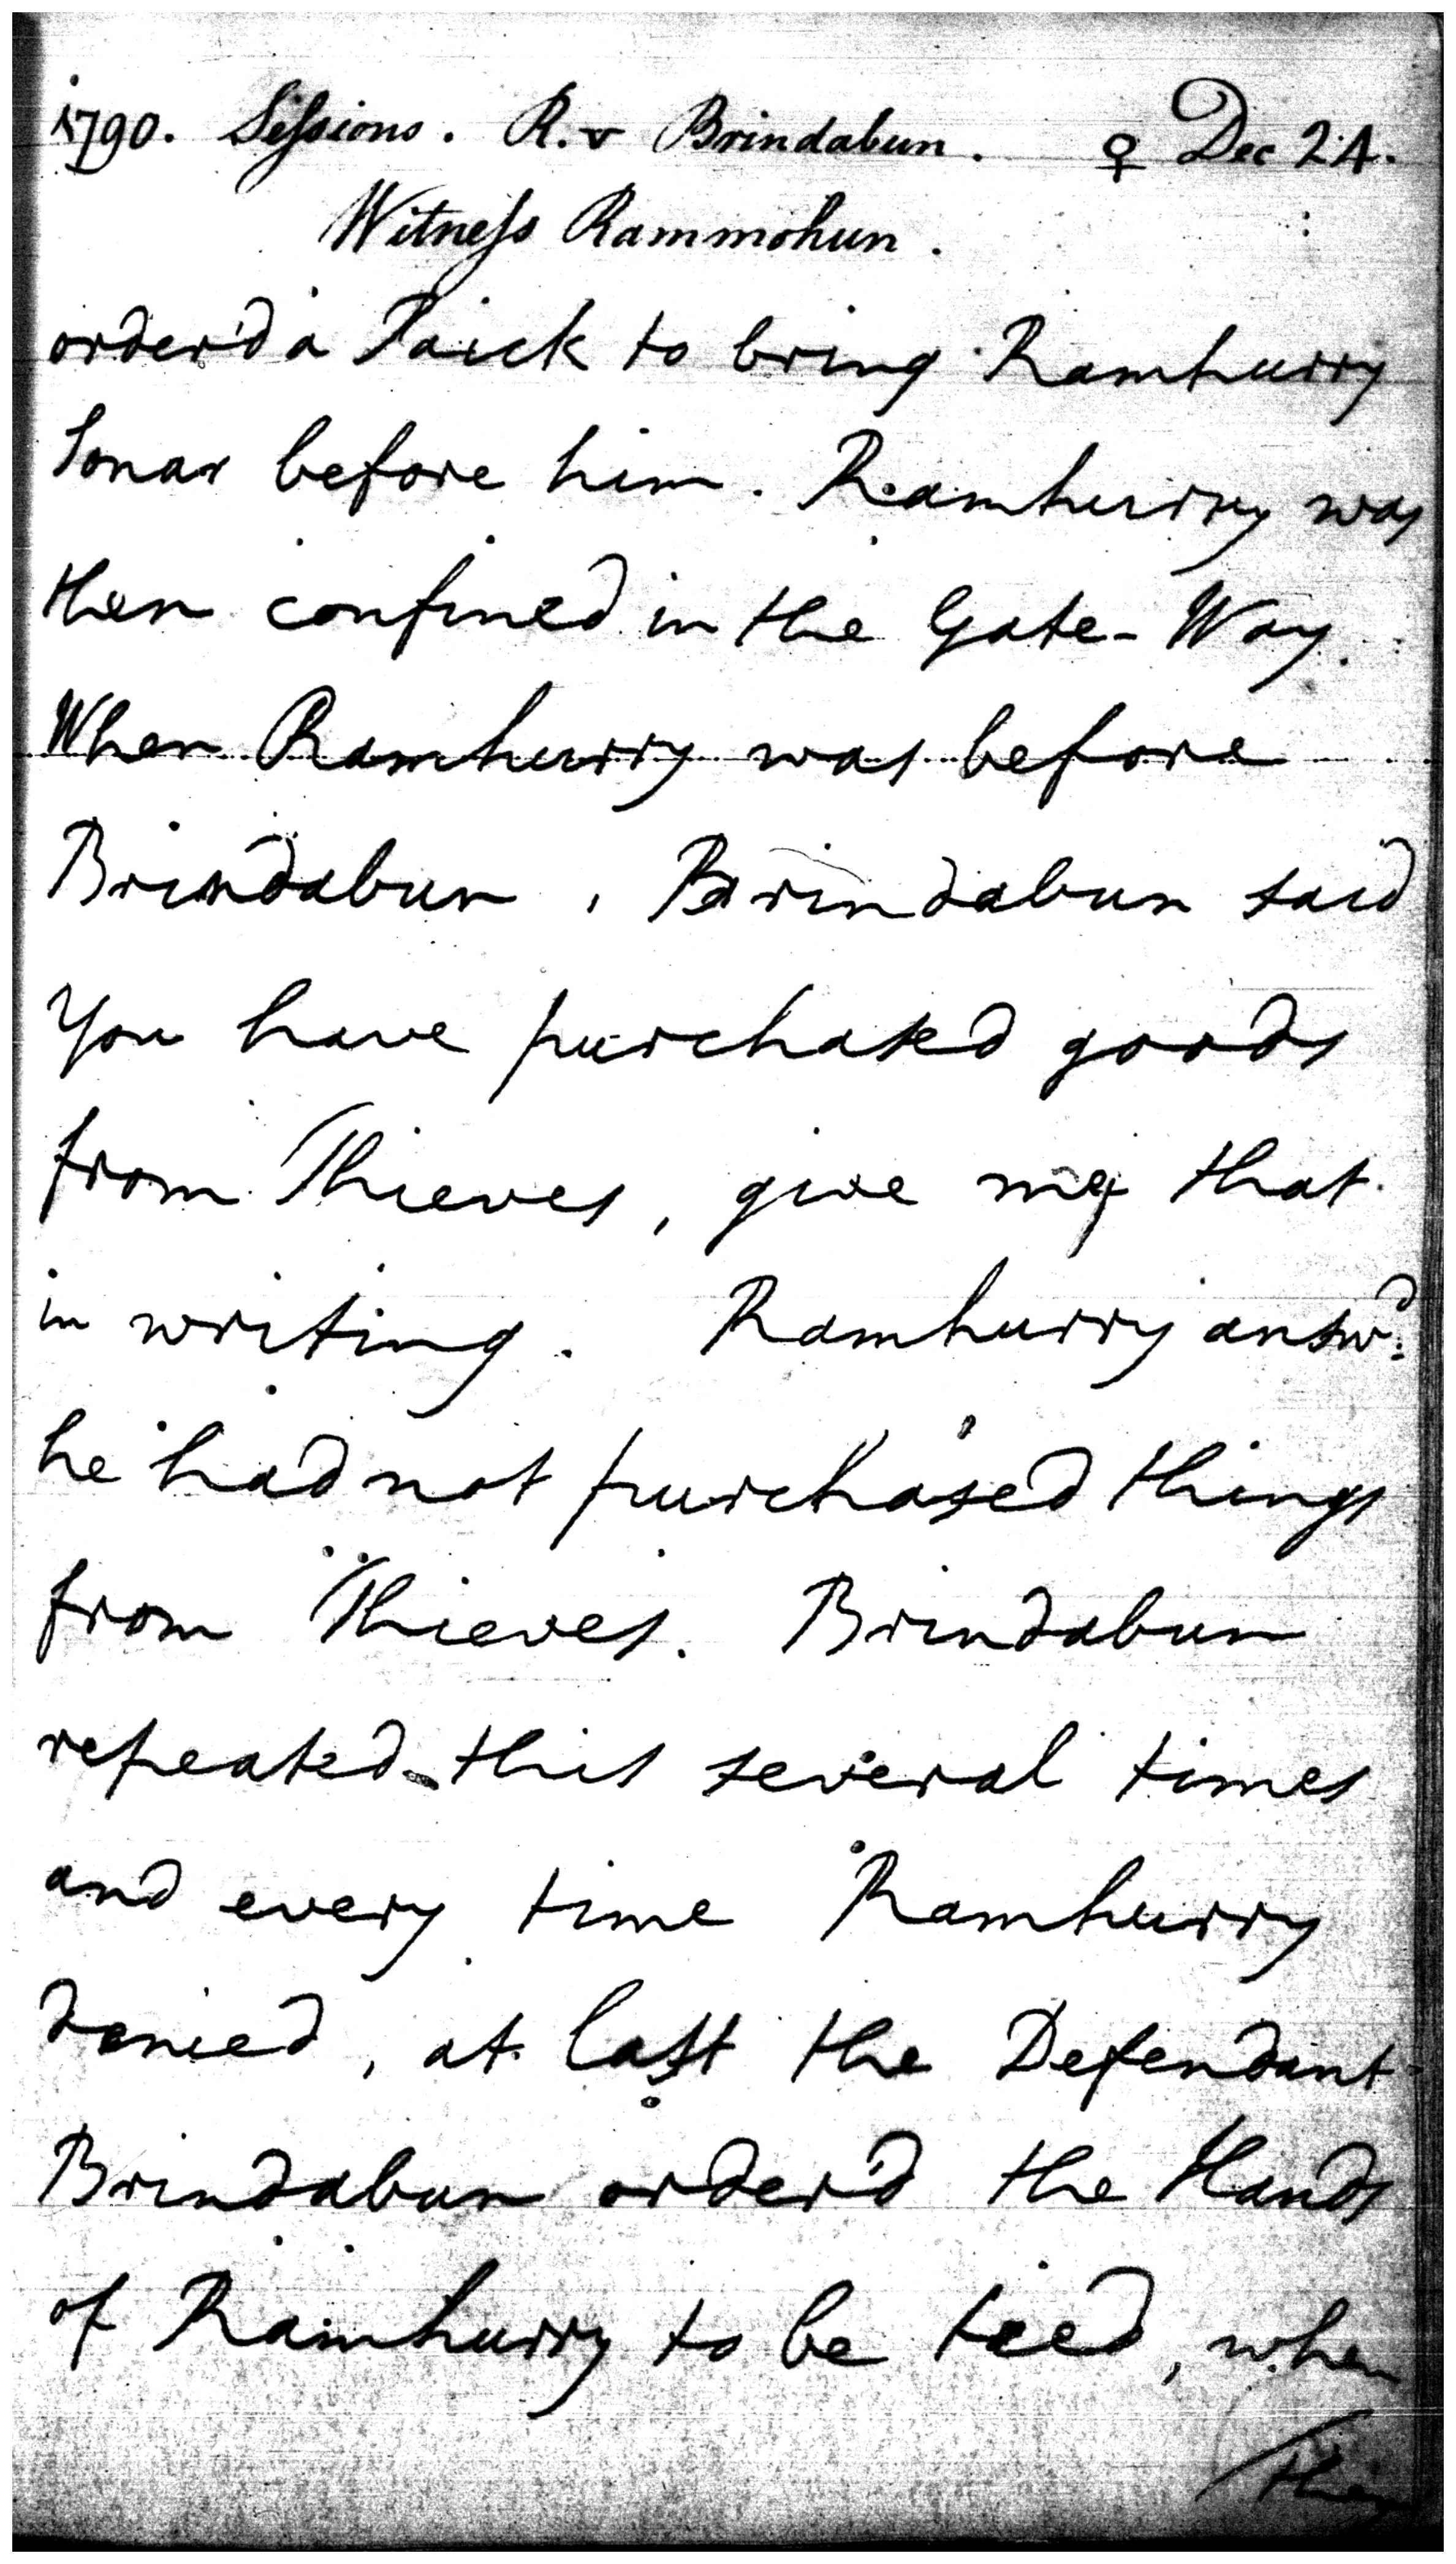 1790. Sessions. R. v Brindabun. ♀ Dec 24.
Witness Rammohun.
order'd a Paick to bring Ramhurry
Sonar before him. Ramhurry was
then confined in the Gate-Way.
When Ramhurry was before
Brindabun, Brindabun said
You have purchased goods
from Thieves, give me that
in writing. Ramhurry answd:
he had not purchased things
from Thieves. Brindabun
repeated this several times
and every time Ramhurry
denied, at last the Defendant
Brindabun order'd the Hands
of Ramhurry to be tied, when